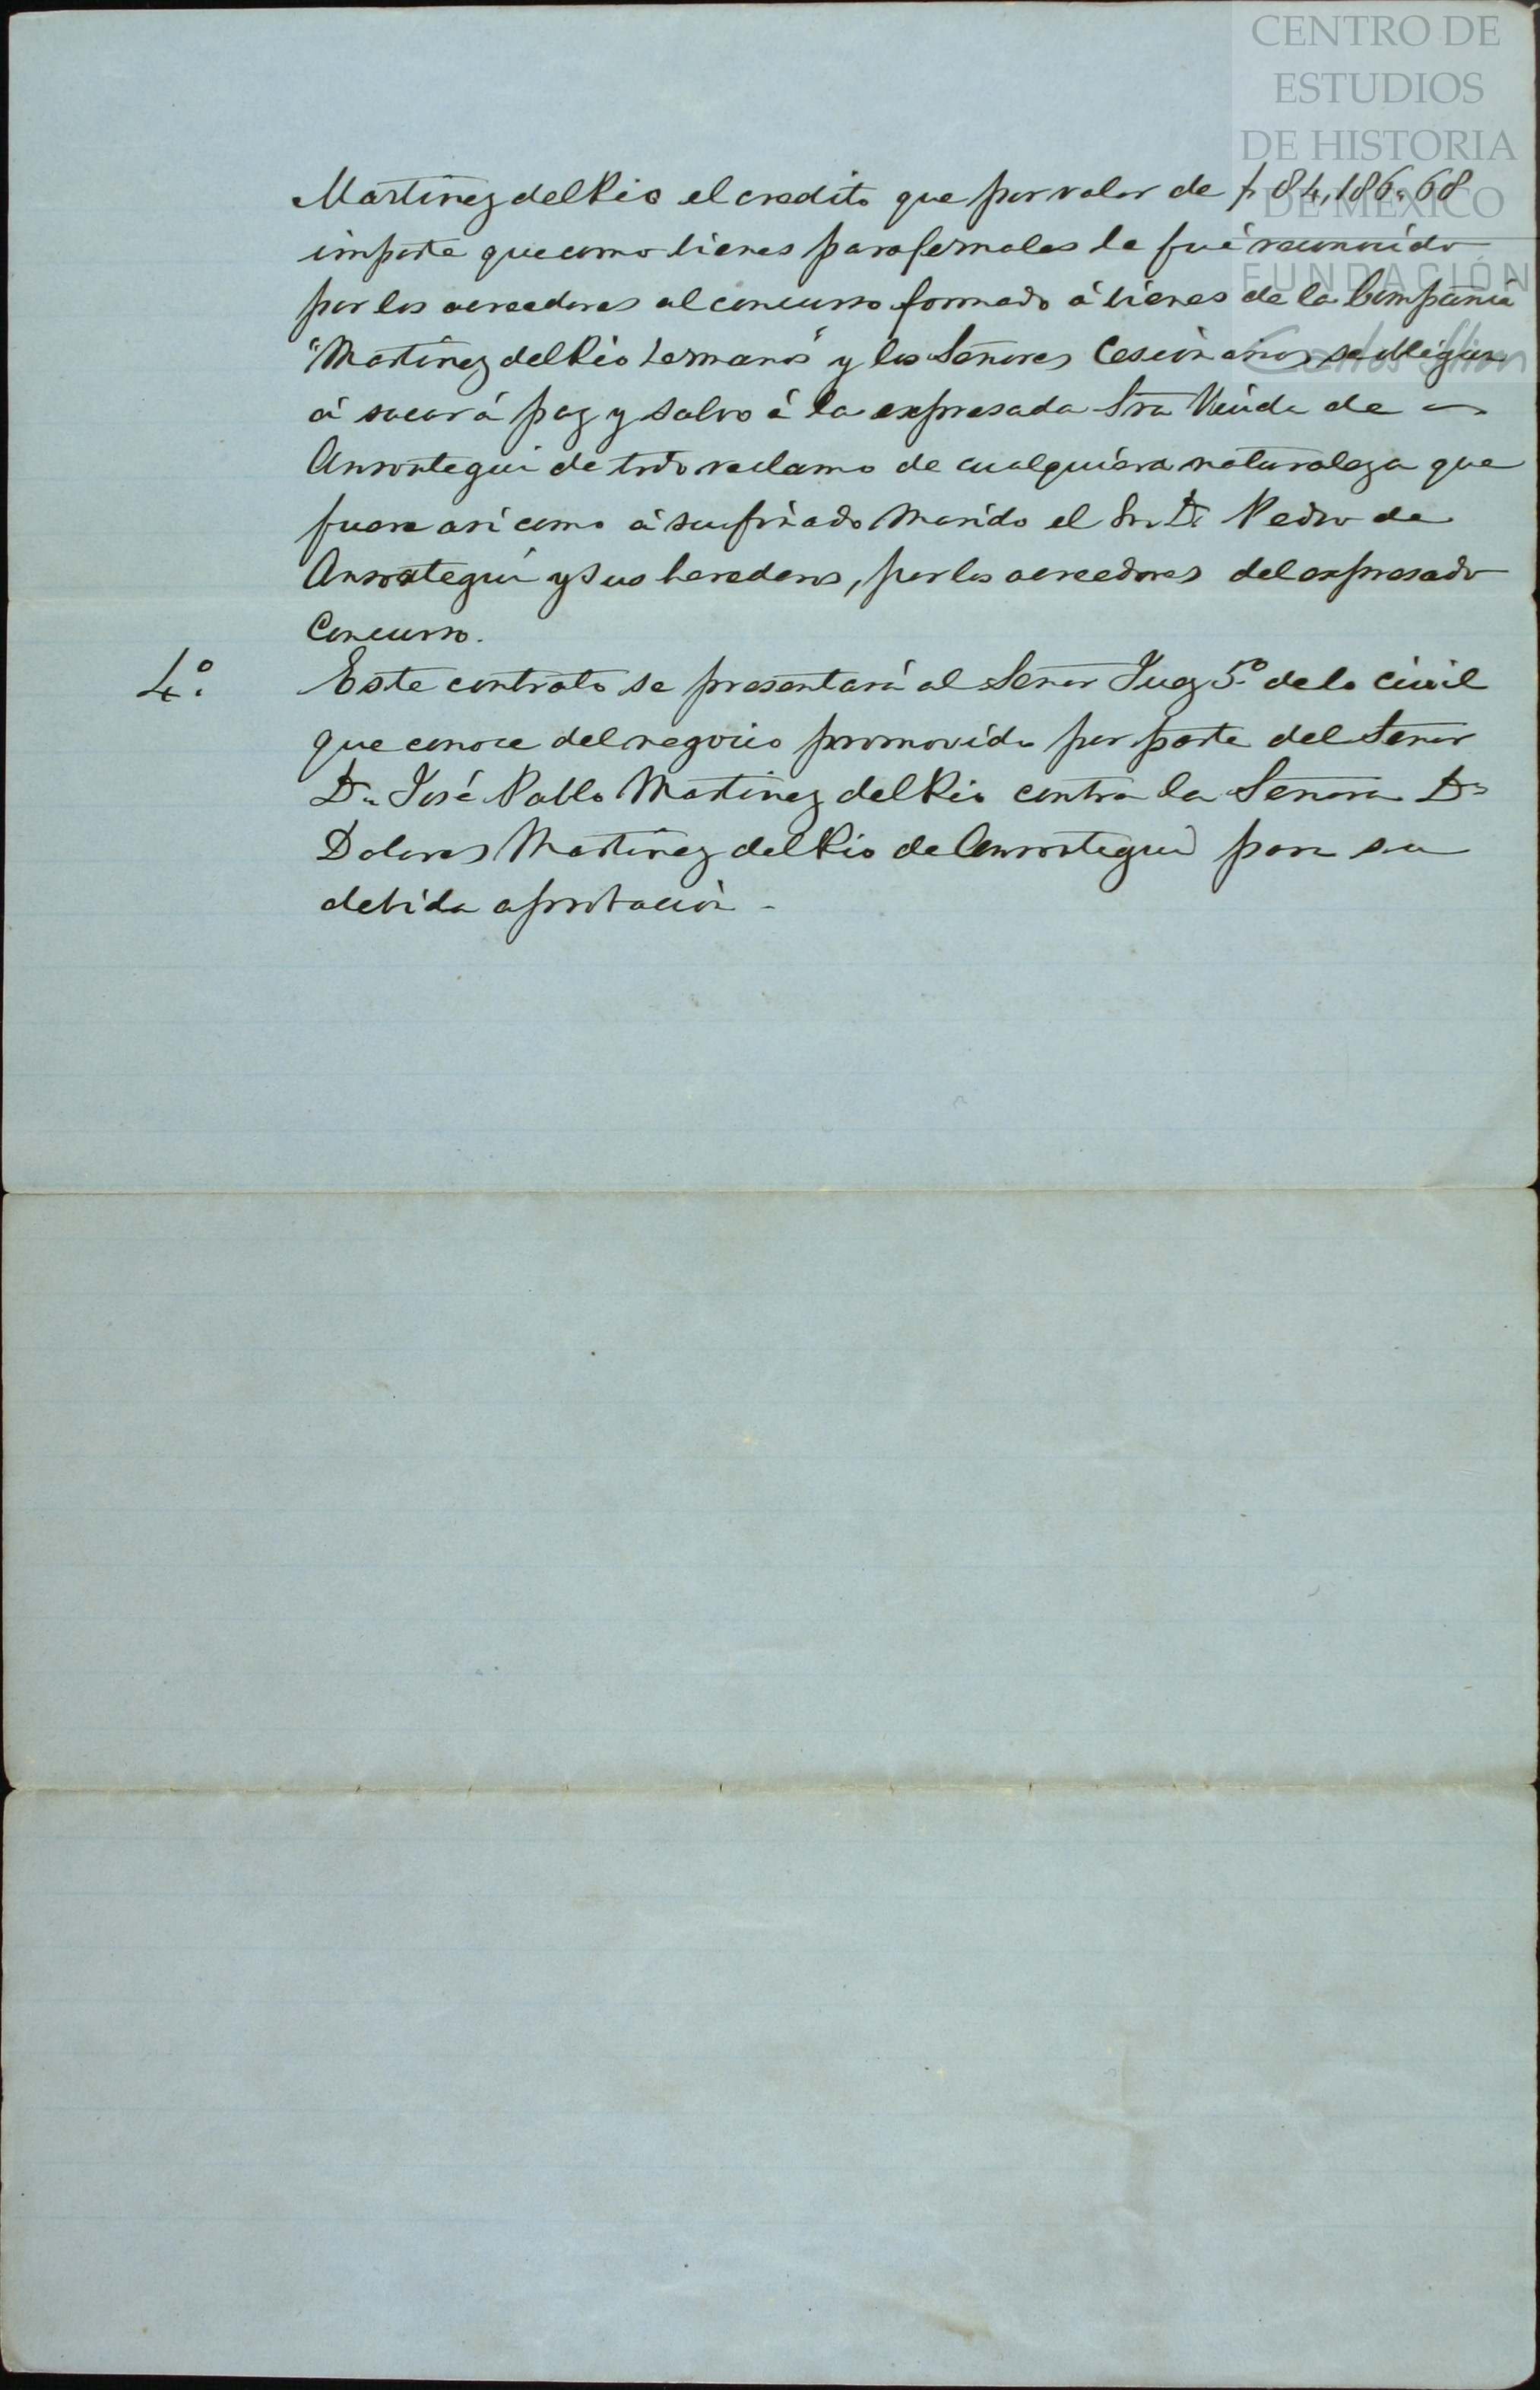 CENTRO DE
ESTUDIOS
DE HISTORIA
DE MÉXICO
FUNDACIÓN
Carlos Slim
Martinez del Rio el credito que por valor de p 84,186.68
importe que como bienes parafernales le fué reconocido
por los acreedores al concurso formado á bienes de la Compania
"Martinez del Rio hermanos" y los Señores Cesionarios se obligan
á sacar á paz y salvo á la expresada Sra Viuda de
Ansoategui de todo reclamo de cualquiera naturaleza que
fuere asi como á su finado Marido el Sr. Dn Pedro de
Ansoategui y sus herederos, por los acreedores del expresado
Concurso.
4º. Este contrato se presentará al Señor Juez 5º de lo civil
que conoce del negocio promovido por parte del Señor
Dn José Pablo Martinez del Rio contra la Señora Da
Dolores Martinez del Rio de Ansoategui para su
debida aprobación.